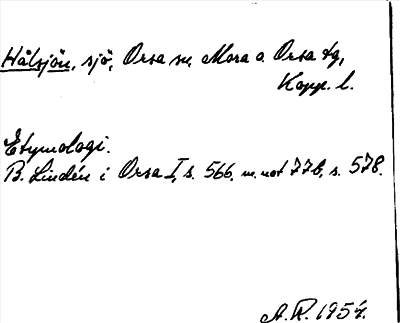 Hålsjön, sjö, Orsa sn, Mora o. Orsa tg,
Kopp. l.
Etymologi.
B. Lindén i Orsa I, s. 566, m. not 77b, s. 578.
A.R. 1954.